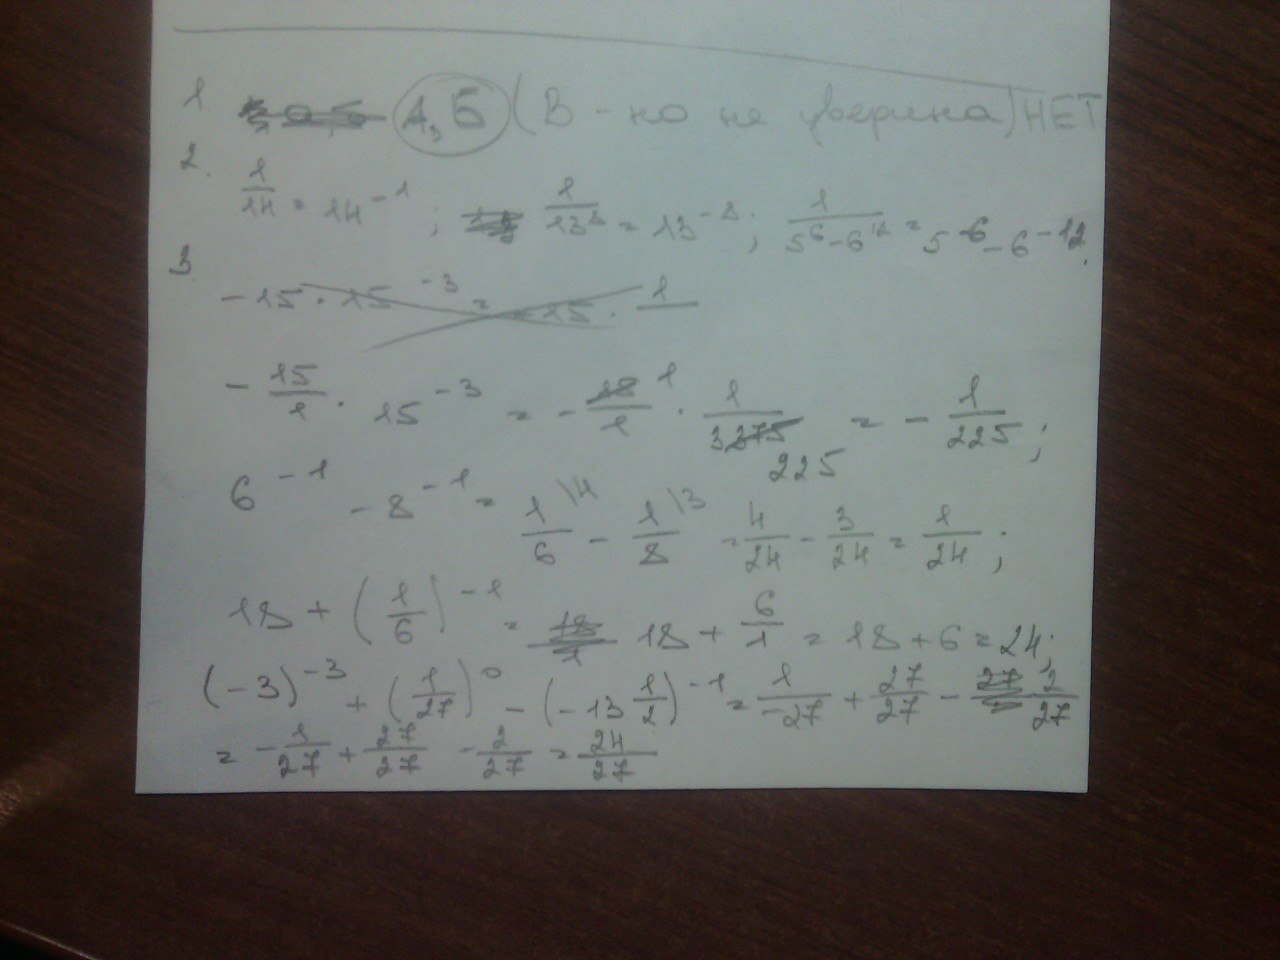 1 А, Б (В - но не уверена) НЕТ
2. 1/14 = 14^-1 ; 1/13^8 = 13^-8 ; 1/(5^6 - 6^12) = 5^-6 - 6^-12.
3
-15 · 15^-3 = -15 · 1/
- 15/1 · 15^-3 = - 15/1 1 · 1/3375 225 = - 1/225 ;
6^-1 - 8^-1 = 1/6 \4 - 1/8 \3 = 4/24 - 3/24 = 1/24 ;
18 + (1/6)^-1 = 18/1 18 + 6/1 = 18 + 6 = 24;
(-3)^-3 + (1/27)^0 - (-13 1/2)^-1 = 1/-27 + 27/27 - 2/27
= - 1/27 + 27/27 - 2/27 = 24/27